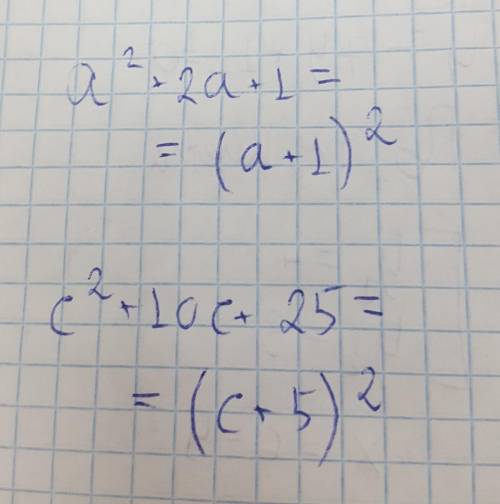 a² + 2a + 1 =
= (a + 1)²
c² + 10c + 25 =
= (c + 5)²